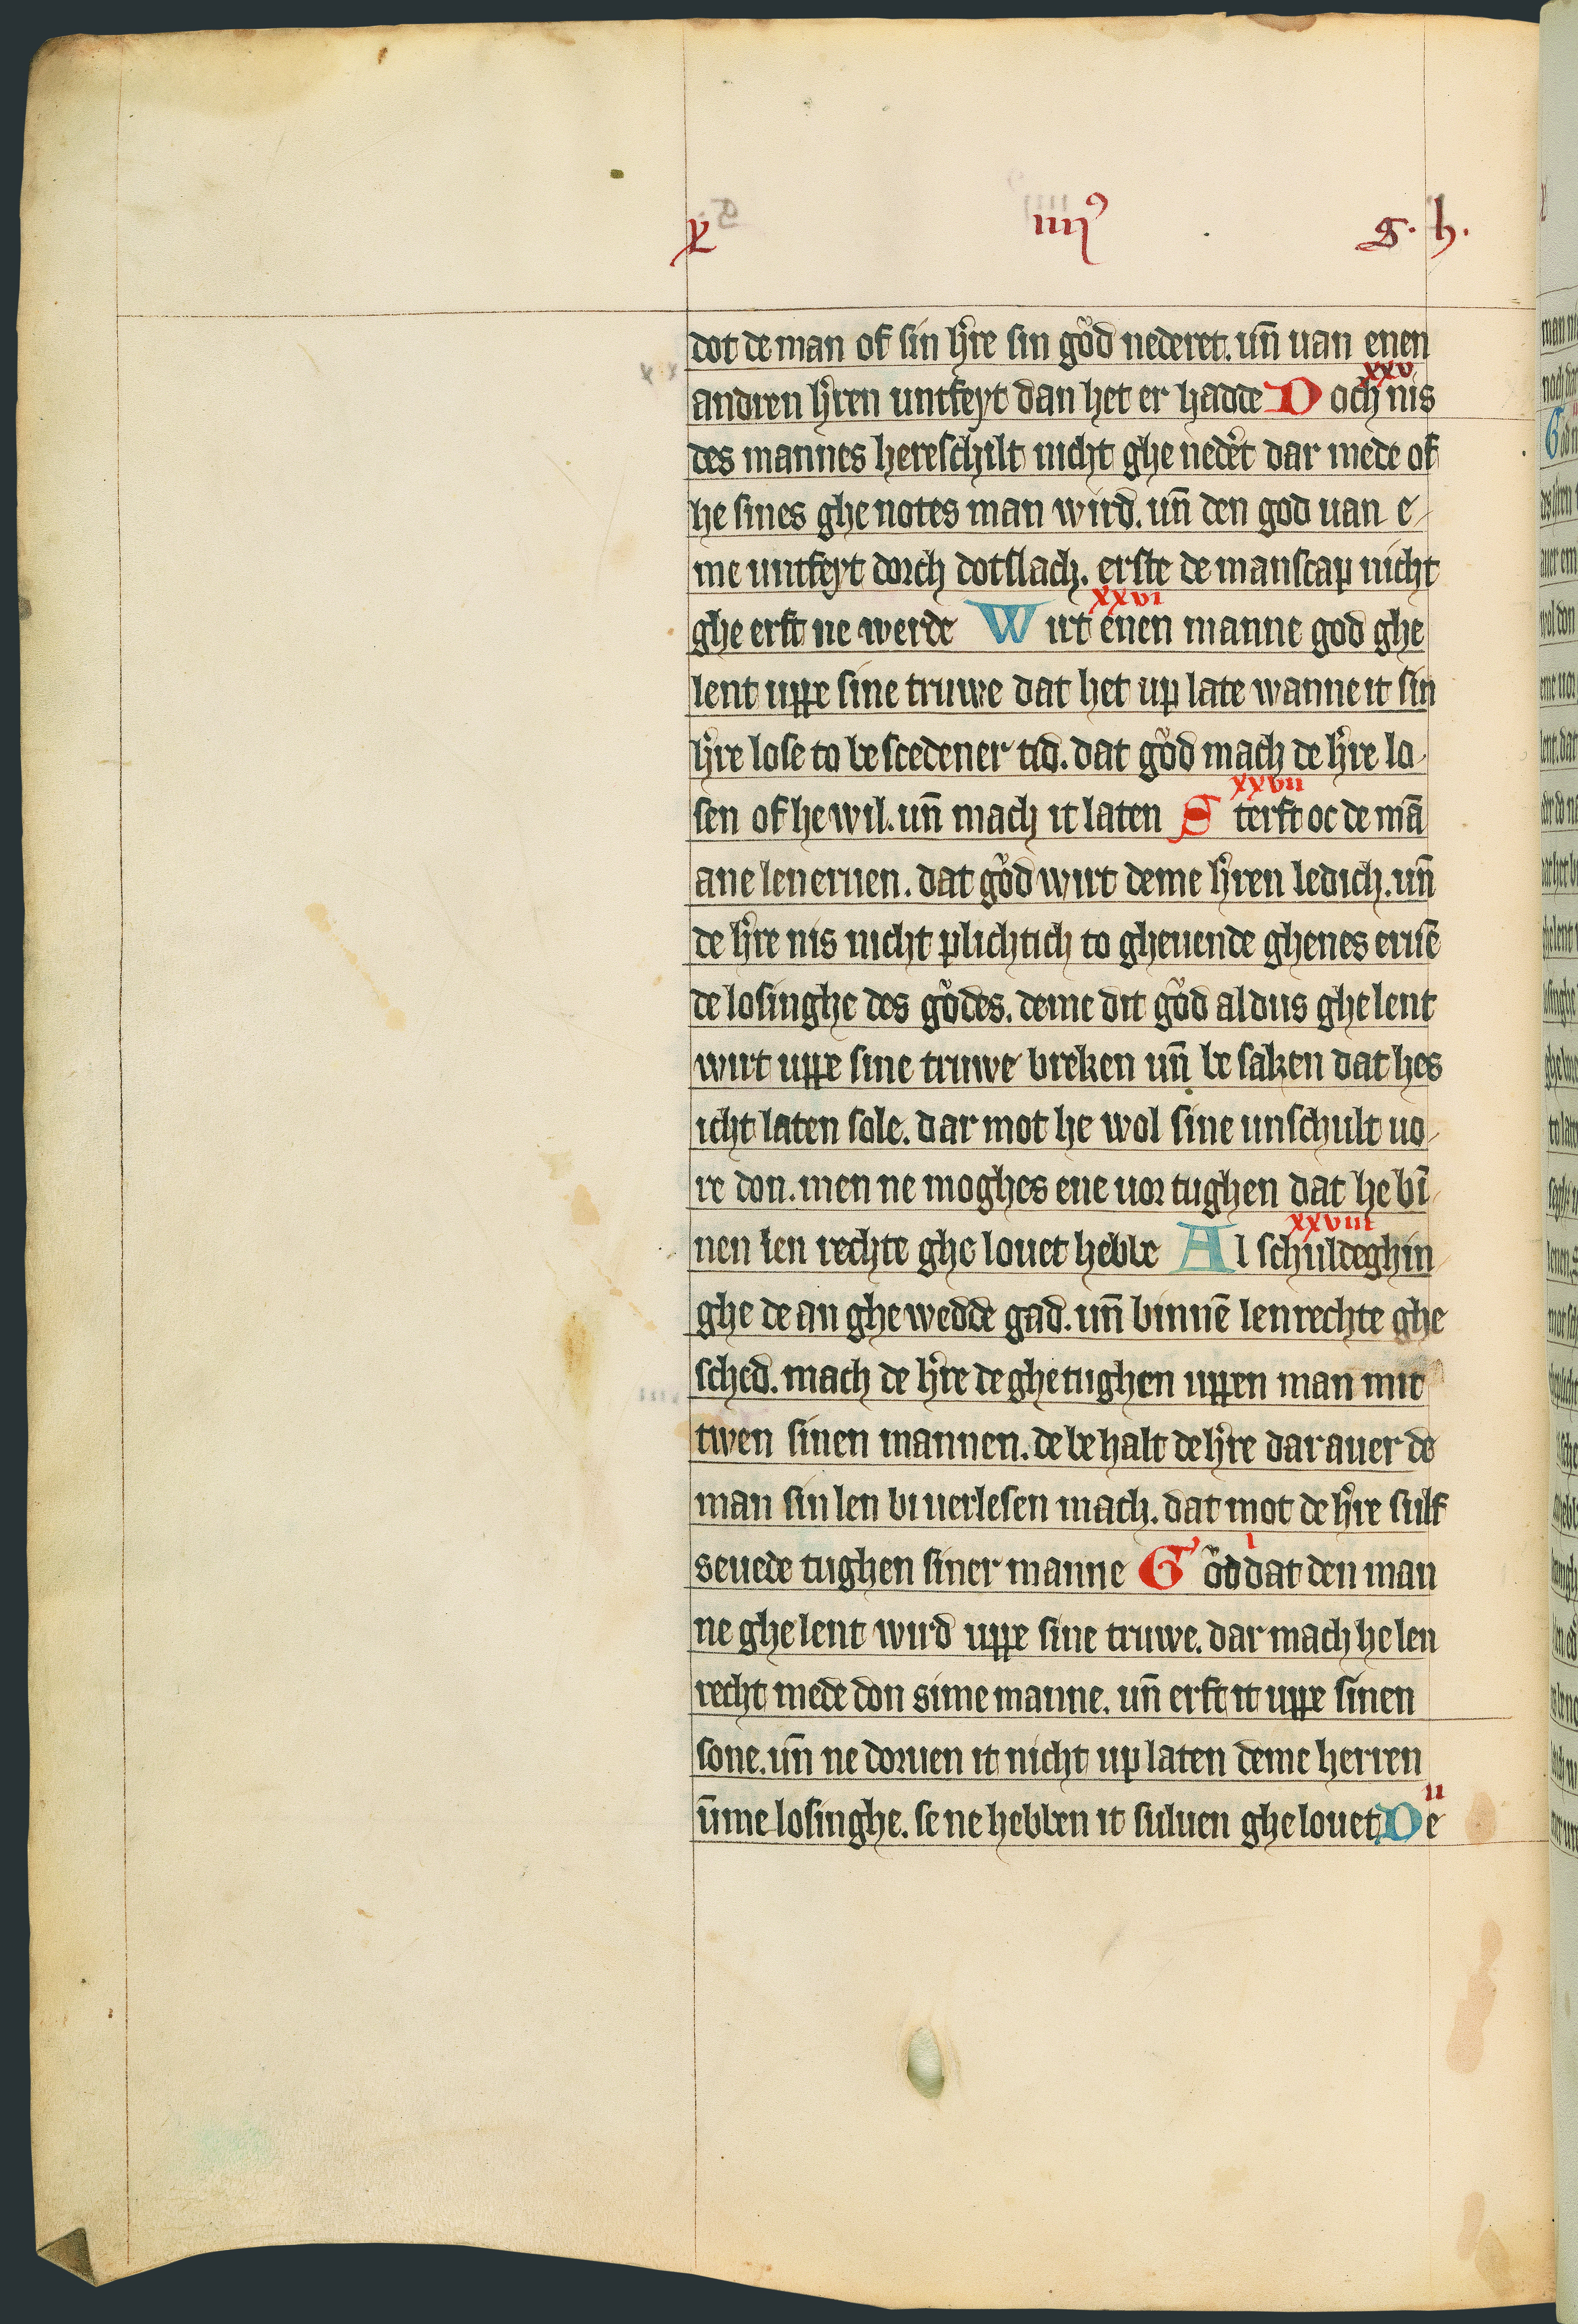 x iiij⁹ G. h.
dot de man of sin h̾re sin gůd nederet. un̄ uan enen
andren h̾ren untfeyt dan het er hadde D och nis
xxv
des mannes hereschilt nicht ghe neder̾t dar mede of
he sines ghe notes man wird. un̄ den god uan e-
me untfeyt dorch dotslach. erste de manscap nicht
xxvi
ghe erft ne werde W irt enen manne god ghe
lent uppe sine truwe dat het up late wanne it sin
h̾re lose to be scedener tid. dat gůd mach de h̾re lo-
xxvii
sen of he wil. un̄ mach it laten S terft oc de mā
ane len eruen. dat gůd wirt deme h̾ren ledich. un̄
de h̾re nis nicht plichtich to gheuende ghenes eruē
de losinghe des gůdes. deme dit gůd aldus ghe lent
wirt uppe sine truwe breken un̄ be saken dat hes
icht laten sole. dar mot he wol sine unschult uo-
re don. men ne moghes ene uor tughen dat he bī-
xxviii
nen len rechte ghe louet hebbe A l schuldeghin-
ghe de an ghe wedde gad. un̄ binnē lenrechte ghe
sched. mach de h̾re de ghetughen uppen man mit
twen sinen mannen. de be halt de h̾re dar auer de
man sin len bi uerlesen mach. dat mot de h̾re sulf
i
seuede tughen siner manne G ůd dat den man
ne ghe lent wird uppe sine truwe. dar mach he len
recht mede don sime manne. un̄ erft it uppe sinen
sone. un̄ ne doruen it nicht up laten deme herren
ii
ūme losinghe. se ne hebben it suluen ghe louet D e